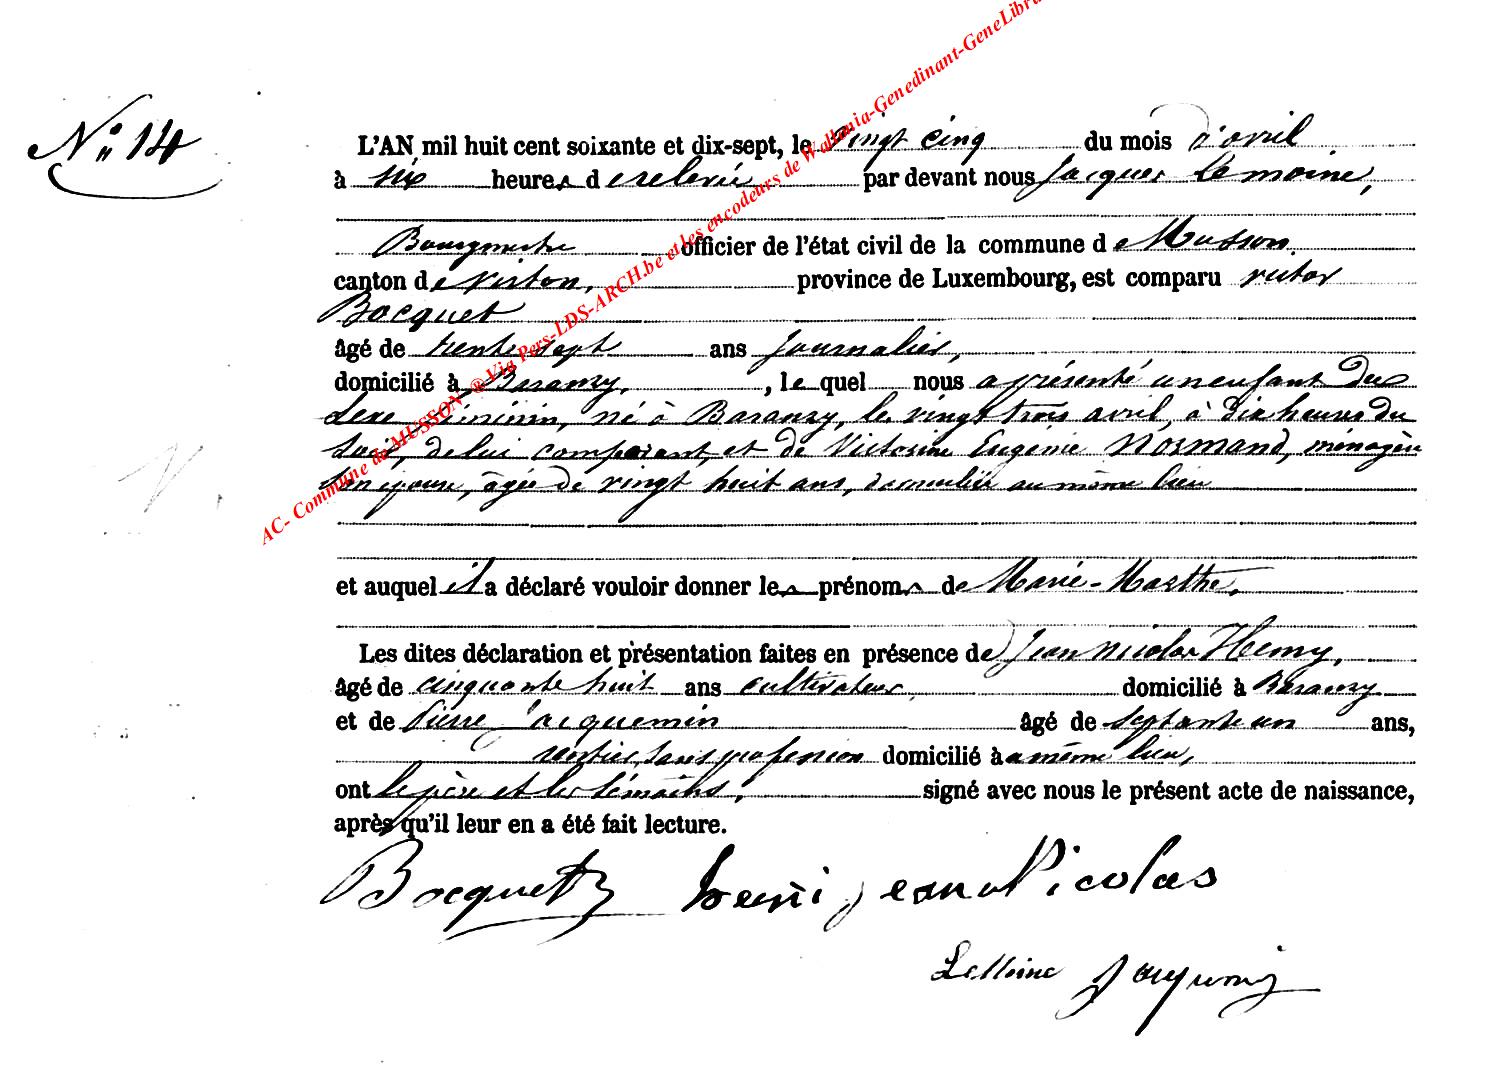 N° 14
L'AN mil huit cent soixante et dix-sept, le vingt cinq du mois d'avril
à six heures de relevée par devant nous Jacques Lemoine,
Bourgmestre officier de l'état civil de la commune de Musson.
canton de Virton, province de Luxembourg, est comparu victor
Bocquet
âgé de trente sept ans journalier,
domicilié à Baranzy, , lequel nous a présenté un enfant du
sexe féminin, né à Baranzy, le vingt trois avril, à dix heures du
soir, de lui comparant, et de Victorine Eugénie Normand, ménagère
son épouse, âgée de vingt huit ans, domiciliée au même lieu
et auquel il a déclaré vouloir donner les prénoms de Marie-Marthe.
Les dites déclaration et présentation faites en présence de Jean Nicolas Henry,
âgé de cinquante huit ans cultivateur, domicilié à Baranzy
et de Pierre Jacquemin âgé de septante un ans,
rentier, sans profession domicilié à a même lieu,
ont le père et les témoins, signé avec nous le présent acte de naissance,
après qu'il leur en a été fait lecture.
Bocquet henri jean Nicolas
LeMoine Jaquemin
AC- Commune de MUSSON ® Via Pers-LDS-ARCH.be et les encodeurs de Wallonia-Genedinant-GeneLibra